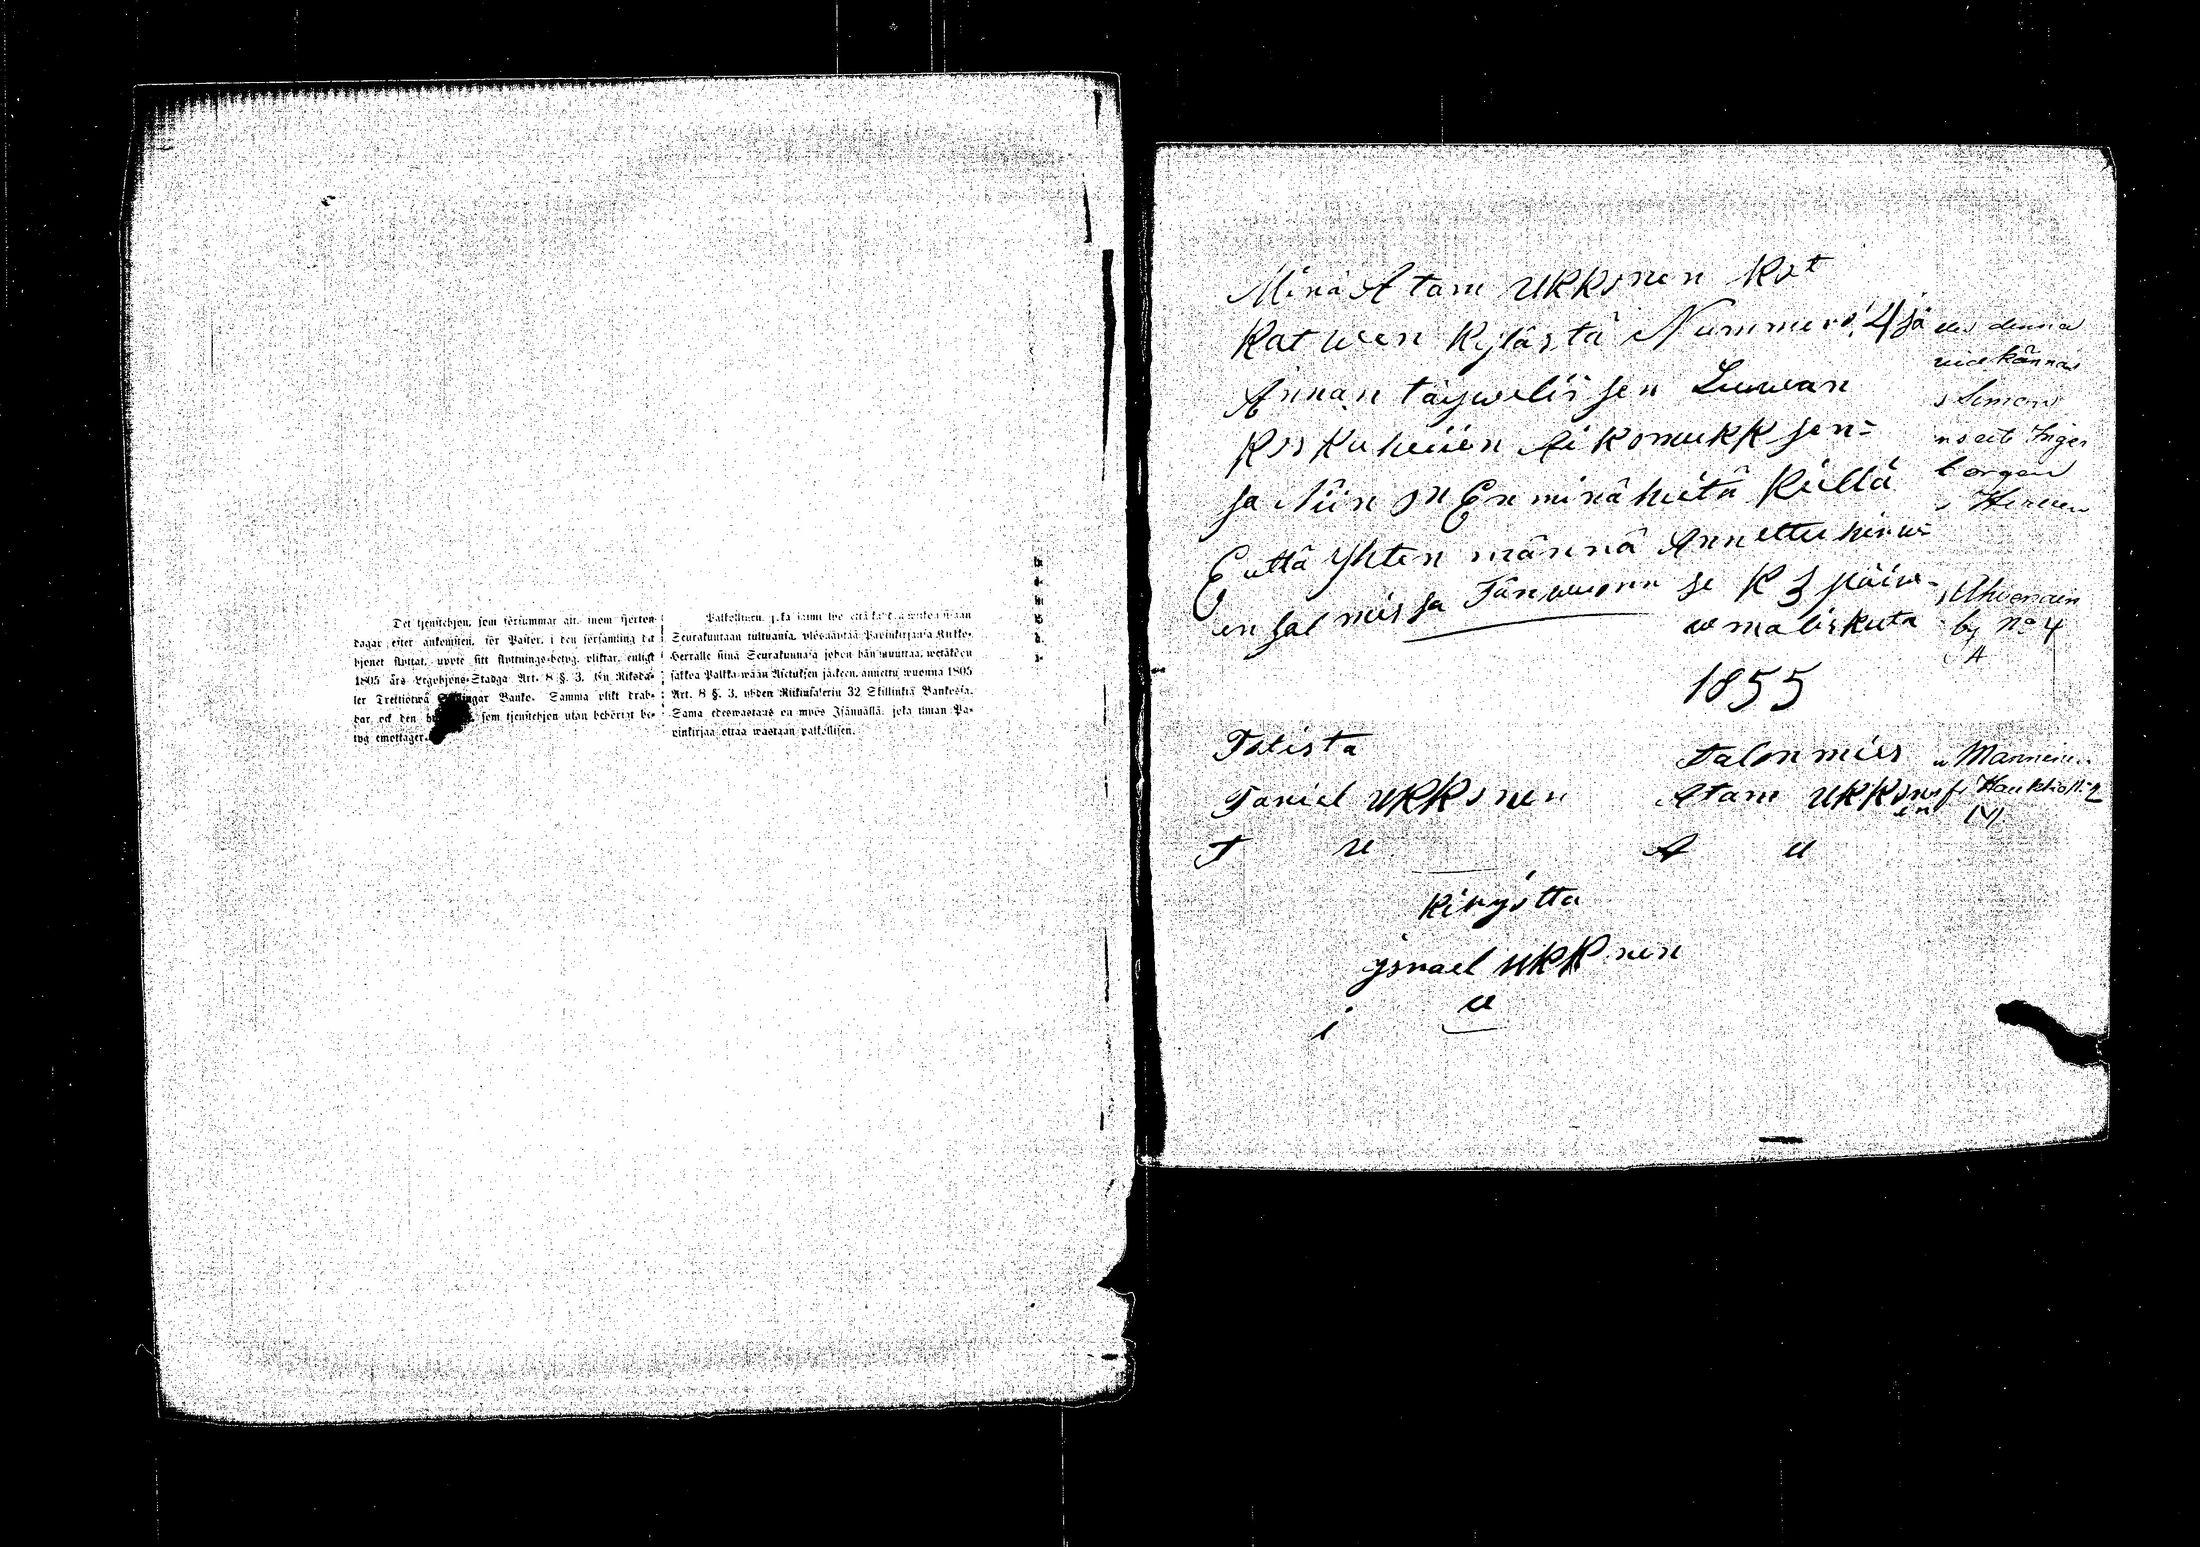 Det tjenstehjon, som försummar att, inom fjorton
dagar efter ankomsten, för Pastor, i den församling dit
hjonet flyttat, uppte sitt flyttnings-betyg, pliktar, enligt
1805 års Legohjons-Stadga Art. 8 §. 3. En Riksda-
ler Trettiotwå Skillingar Banko. Samma plikt drab-
bar ock den som tjenstehjon utan behörigt be-
tyg emottager.
Palkollinen, joka
Seurakuntaan tultuansa, ylösnäyttää Papinkirjansa Kirkko-
Herralle siinä Seurakunnasa johon hän muuttaa, wetäköön
sakkoa Palkka-wään Asetuksen jälkeen, annettu wuonna 1805
Art. 8 §. 3. yhden Riikintalerin 32 Skillinkiä Bankosa.
Sama edeswastaus on myös Isännällä, joka ilman Pa-
pinkirjaa ottaa wastaan palkollisen.
Minä Atam Ukkonen Kot
Kat ween Kylästä Nummero 4 ja
Annan täywelisen Luwan
Koskuheiien Aikomukk sen=
sa Niin on En minä heitä Kiellä
Että yhten männä Annettu hirw=
en sal missa Tänwuonn se K 3 päiw=
wmaliskuta
1855
Totista
Taniel Ukkonen
T u
talon mies
Atam Ukkon
en
A u
Kirjotta
ysrael ukk nen
i u
denna
vidkännas
Simon
Inger
borgen
by No 4
A
Manninen